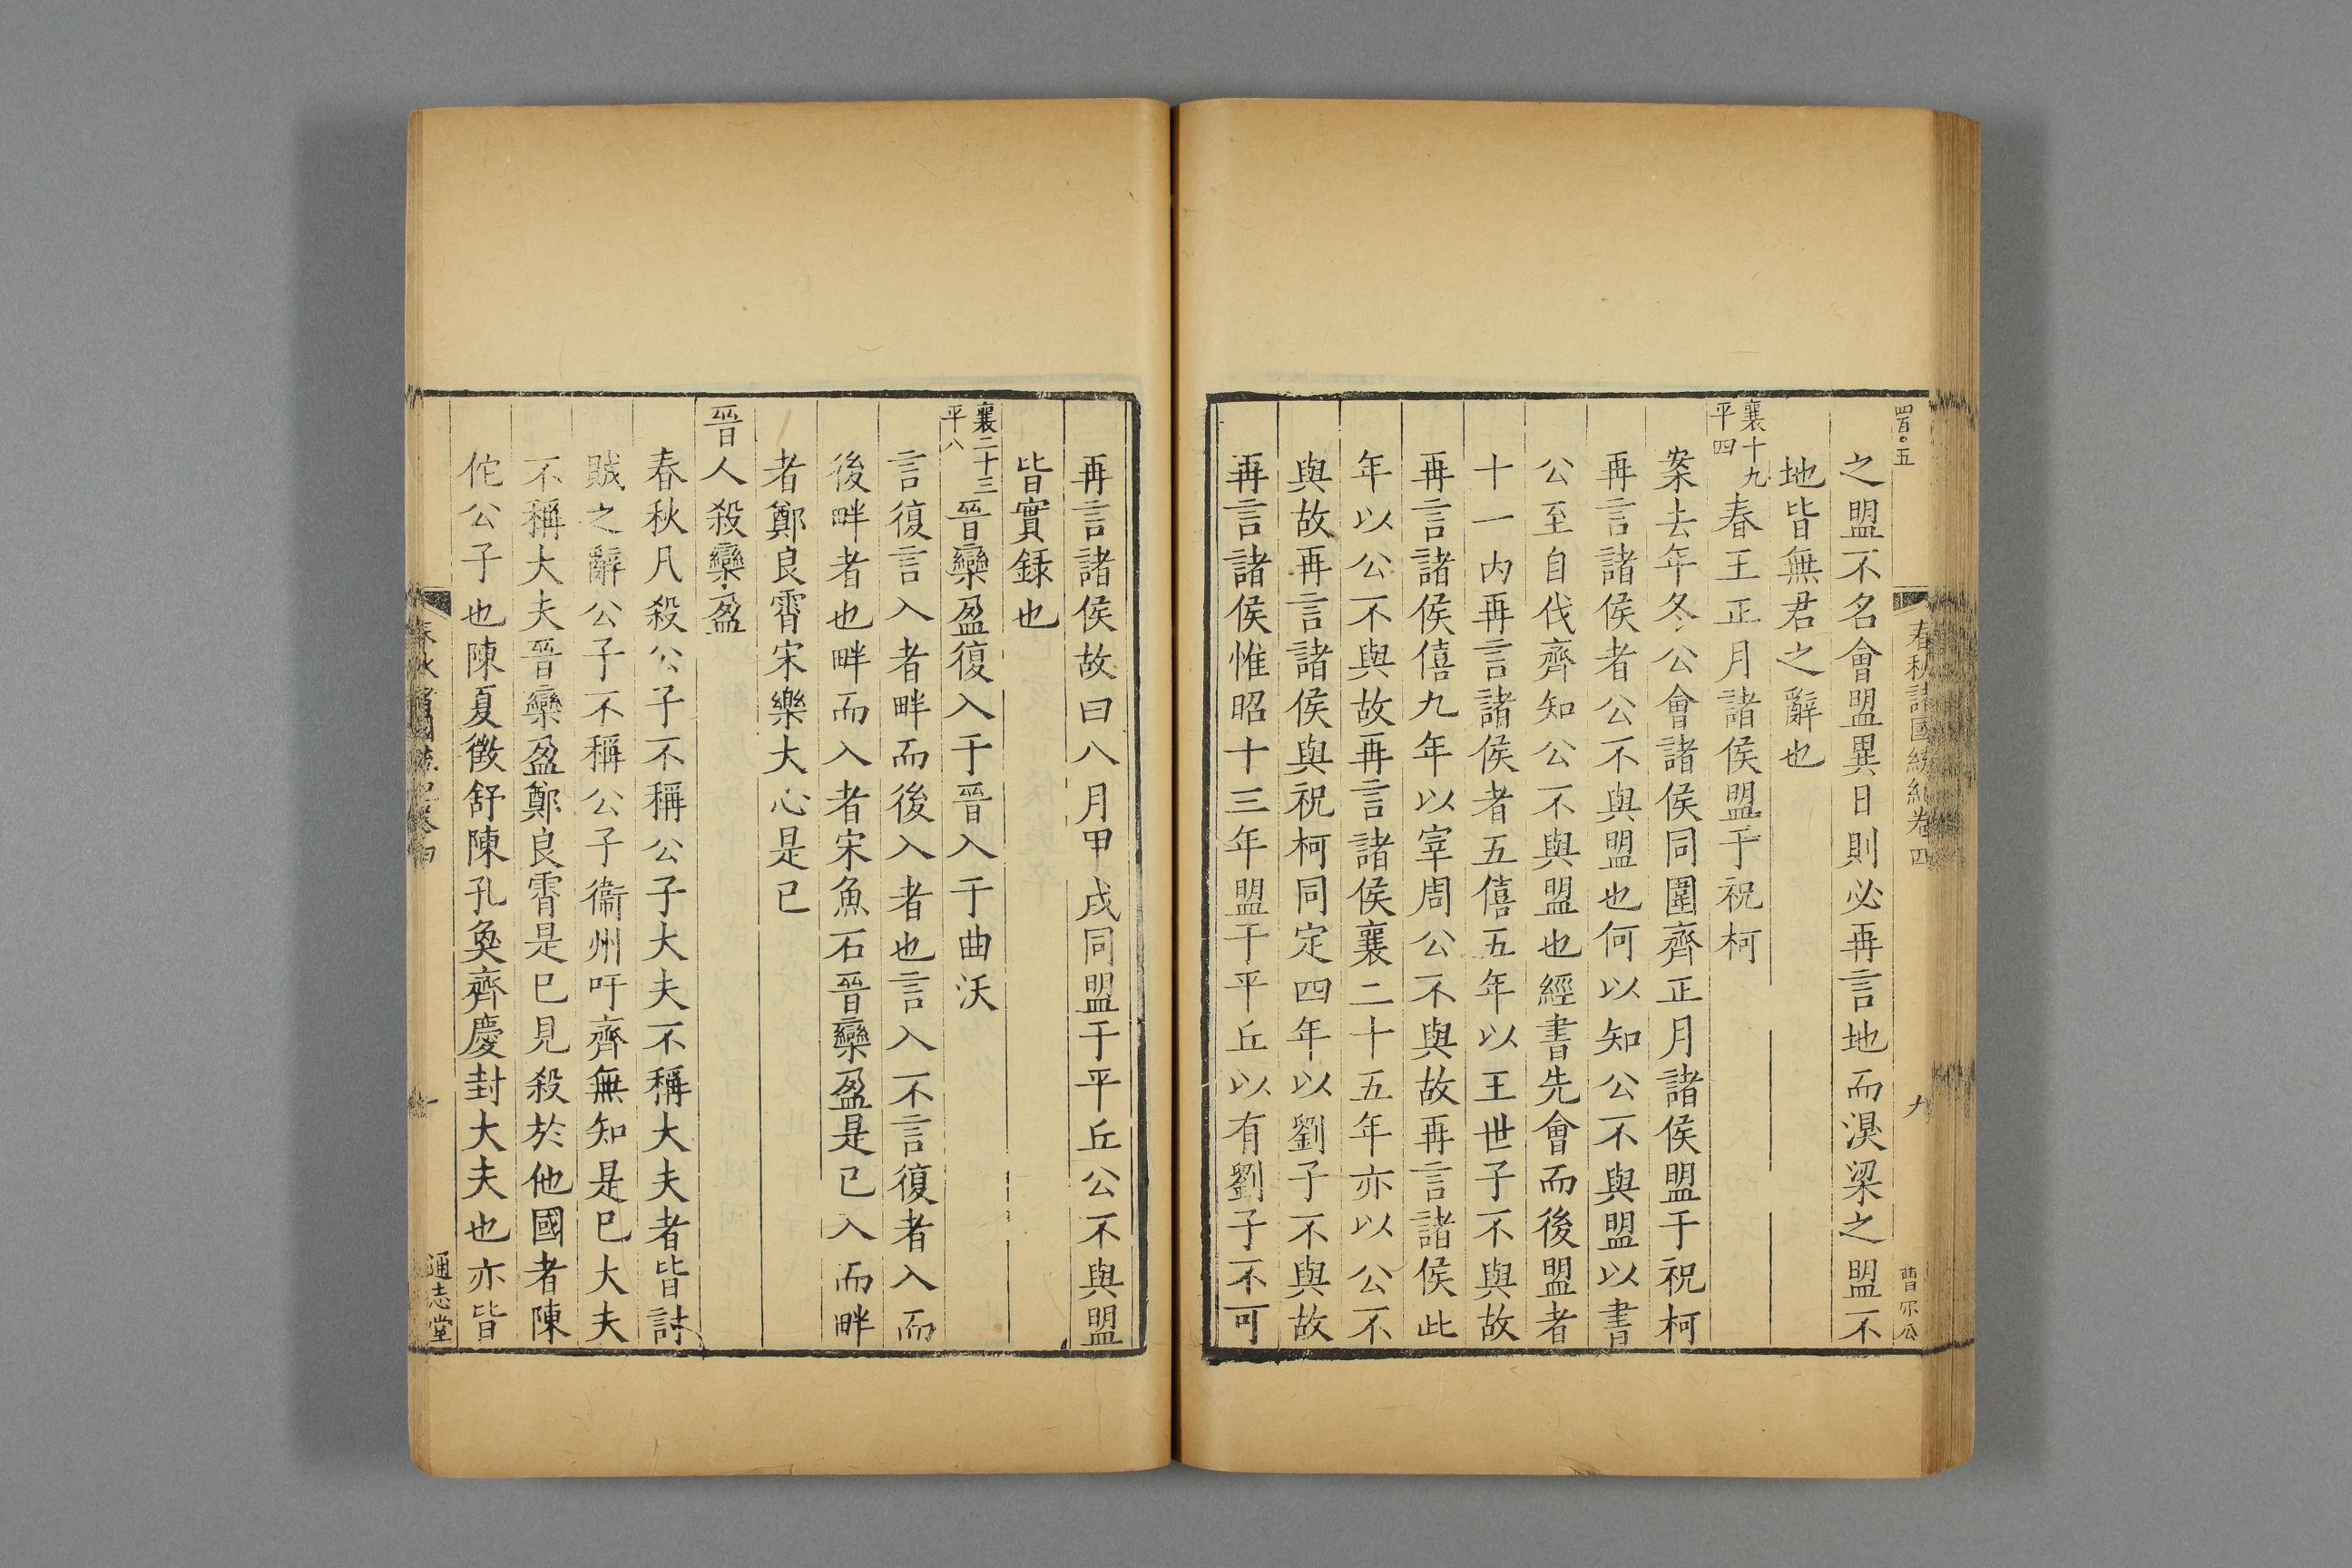 四百〇五
春秋諸國統紀卷四
九
之盟不名會盟異日則必再言地而湨梁之盟不
地皆無君之辭也
襄十九
平四
春王正月諸侯盟于祝柯
案去年冬公會諸侯同圍齊正月諸侯盟于祝柯
再言諸侯者公不與盟也何以知公不與盟以書
公至自伐齊知公不與盟也經書先會而後盟者
十一內再言諸侯者五僖五年以王世子不與故
再言諸侯僖九年以宰周公不與故再言諸侯此
年以公不與故再言諸侯襄二十五年亦以公不
與故再言諸侯與祝柯同定四年以劉子不與故
再言諸侯惟昭十三年盟于平丘以有劉子不可
再言諸侯故曰八月甲戌同盟于平丘公不與盟
皆實録也
襄二十三
平八
晉欒盈復入于晉入于曲沃
言復言入者畔而後入者也言入不言復者入而
後畔者也畔而入者宋魚石晉欒盈是已入而畔
者鄭良霄宋樂大心是已
晉人殺欒盈
春秋凡殺公子不稱公子大夫不稱大夫者皆討
賊之辭公子不稱公子衞州吁齊無知是已大夫
不稱大夫晉欒盈鄭良霄是已見殺於他國者陳
佗公子也陳夏徵舒陳孔奐齊慶封大夫也亦皆
通志堂